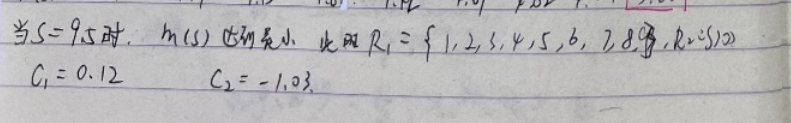 当S=9.5时. m(s) 达到最小 此时 R₁={1,2,3,4,5,6,7,8,9}, R₂={10}
C₁=0.12 C₂=-1.03.